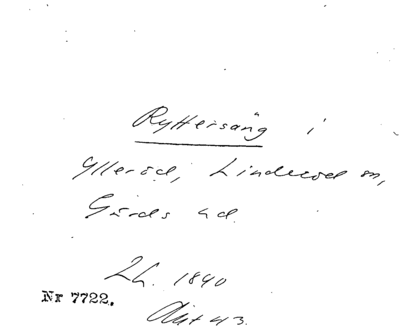 Ryttersäng i
Ylleröd, Linderöd sn,
Gärds hd.
Lh. 1840
Nr 7722.
43.